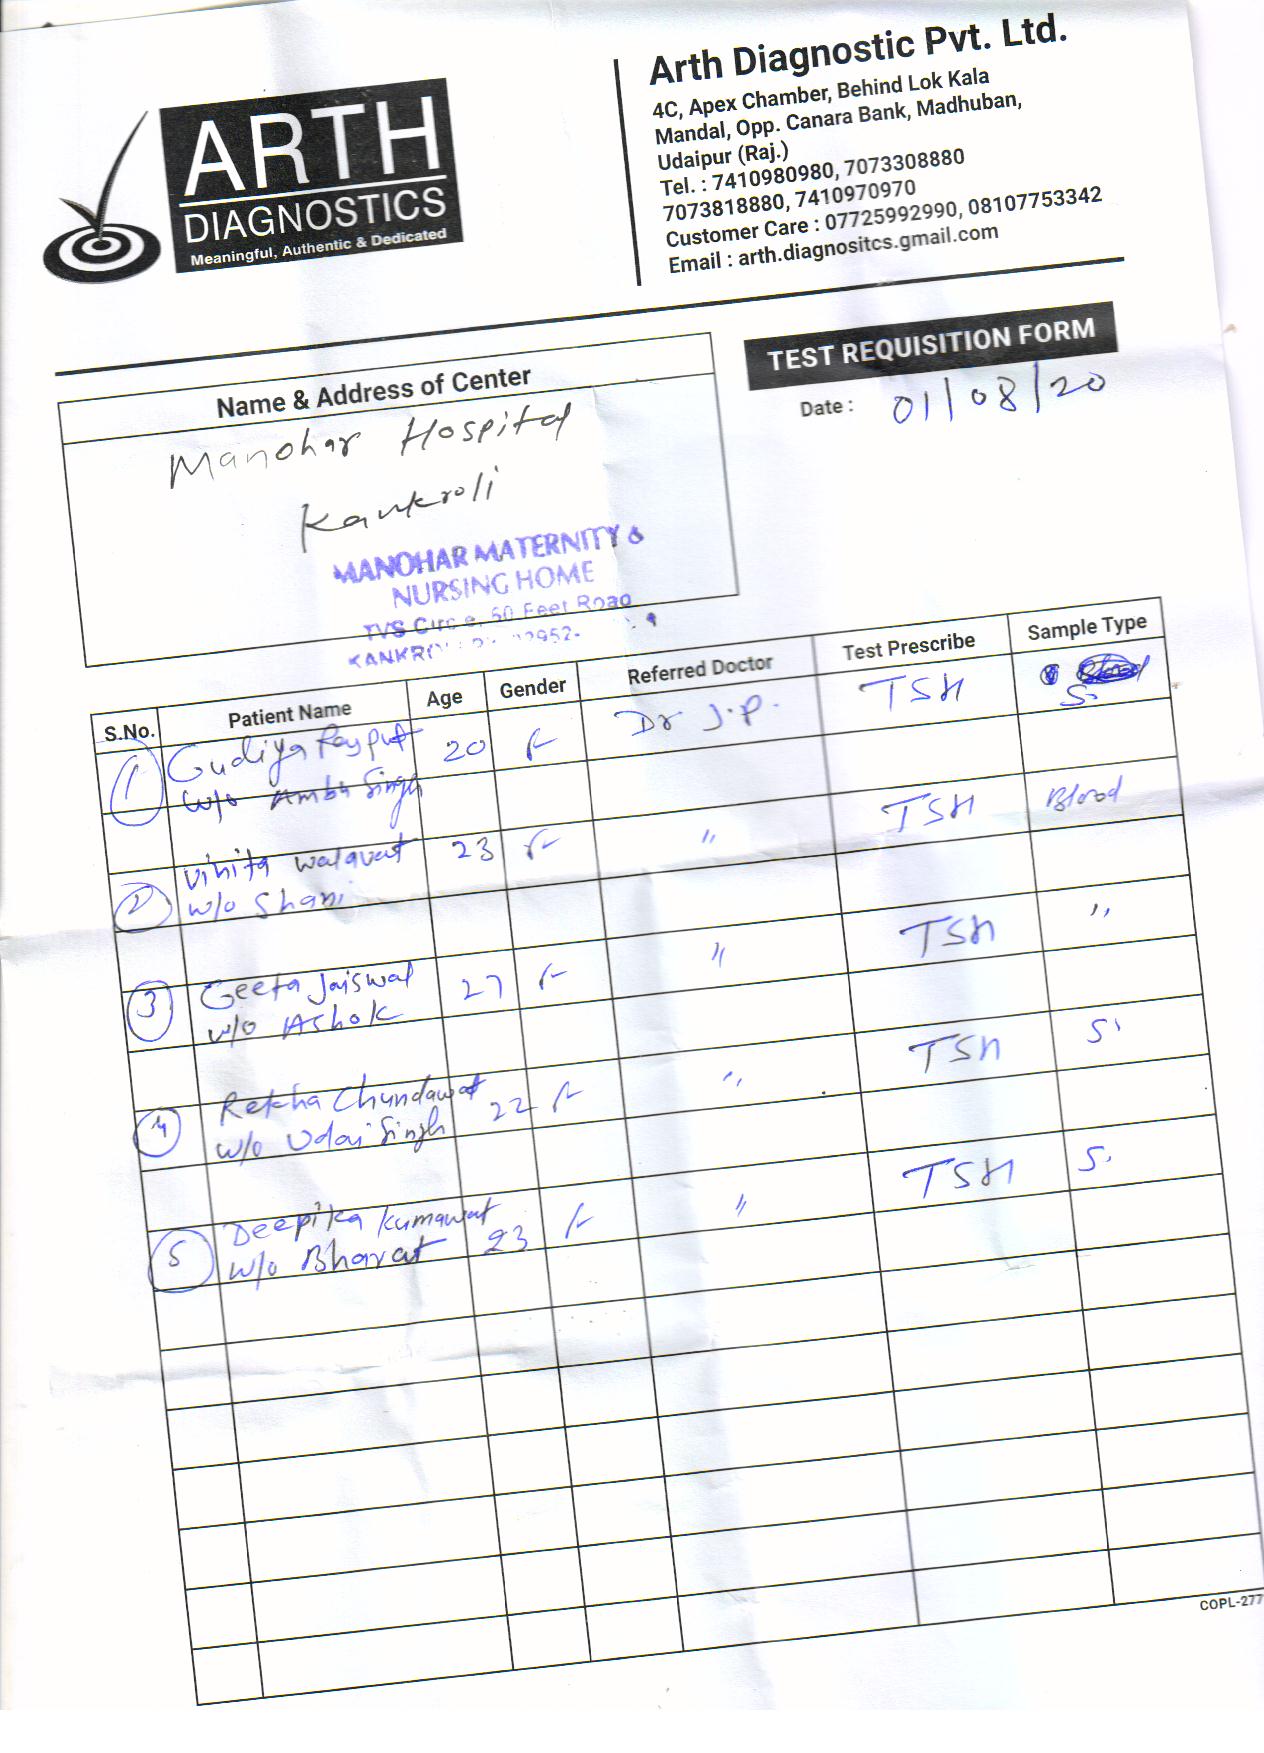 ARTH
DIAGNOSTICS
Meaningful, Authentic & Dedicated
Arth Diagnostic Pvt. Ltd.
4C, Apex Chamber, Behind Lok Kala
Mandal, Opp. Canara Bank, Madhuban,
Udaipur (Raj.)
Tel. : 7410980980, 7073308880
7073818880, 7410970970
Customer Care : 07725992990, 08107753342
Email : arth.diagnositcs.gmail.com
TEST REQUISITION FORM
Date : 01/08/20
Name & Address of Center
Manohar Hospital
Kankroli
MANOHAR MATERNITY &
NURSING HOME
TVS Circle, 50 Feet Road
S.No. Patient Name Age Gender Referred Doctor Test Prescribe Sample Type
1 Gudiya Rajput 20 F Dr J.P. TSH S.
w/o Ambu Singh
2 Vinita Walavat 23 F " TSH Blood
w/o Shani
3 Geeta Jaiswal 27 F " TSH "
w/o Ashok
4 Rekha Chundawat 22 F " TSH S.
w/o Udai Singh
5 Deepika Kumawat 23 F " TSH S.
w/o Bharat
COPL-277